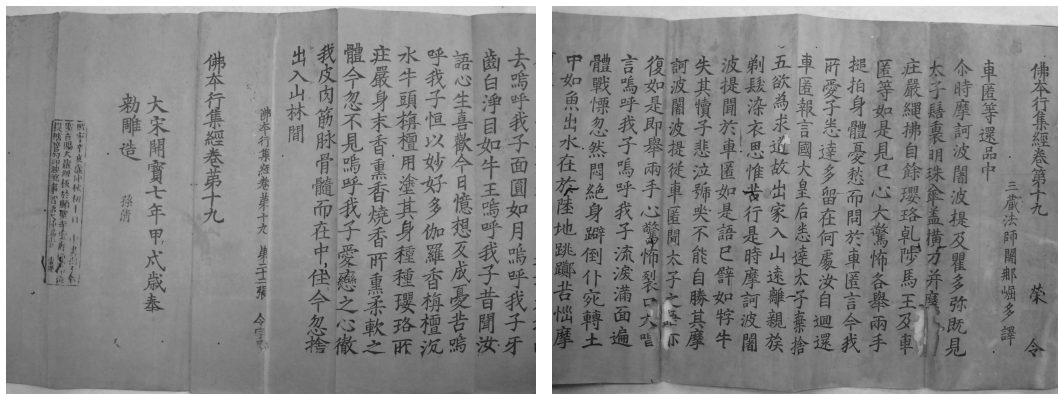 佛本行集經卷第十九 榮 令
三藏法師闍那崛多譯
車匿等還品中
尒時摩訶波闍波提及瞿多弥既見
太子髻裏明珠傘盖橫刀并
莊嚴繩拂自餘瓔珞乹陟馬王及車
匿等如是見已心大驚怖各舉兩手
搥拍身體憂愁而問於車匿言今我
所愛子悉達多留在何處汝自迴還
車匿報言國大皇后悉達太子棄捨
五欲為求道故出家入山遠離親族
剃髮染衣思惟苦行是時摩訶波闍
波提聞於車匿如是語已譬如牸牛
失其犢子悲泣號哭不能自勝其摩
訶波闍波提從車匿聞太子之語亦
復如是即舉兩手心驚怖裂口大唱
言嗚呼我子嗚呼我子流淚滿面遍
體戰慄忽然悶絕身躃倒仆宛轉土
中如魚出水在於陸地跳躑苦惱摩
去嗚呼我子面圓如月嗚呼我子牙
齒白淨目如牛王嗚呼我子昔聞汝
語心生喜歡今日憶想反成憂苦嗚
呼我子恒以妙好多伽羅香栴檀沉
水牛頭栴檀用塗其身種種瓔珞所
莊嚴身末香熏香燒香所熏柔軟之
體今忽不見嗚呼我子愛戀之心徹
我皮肉筋脉骨髓而在中住今忽捨
出入山林間
佛本行集經卷第十九 第二十二張 令字号
佛本行集經卷第十九
大宋開寶七年甲戌歲奉
勅雕造 孫清